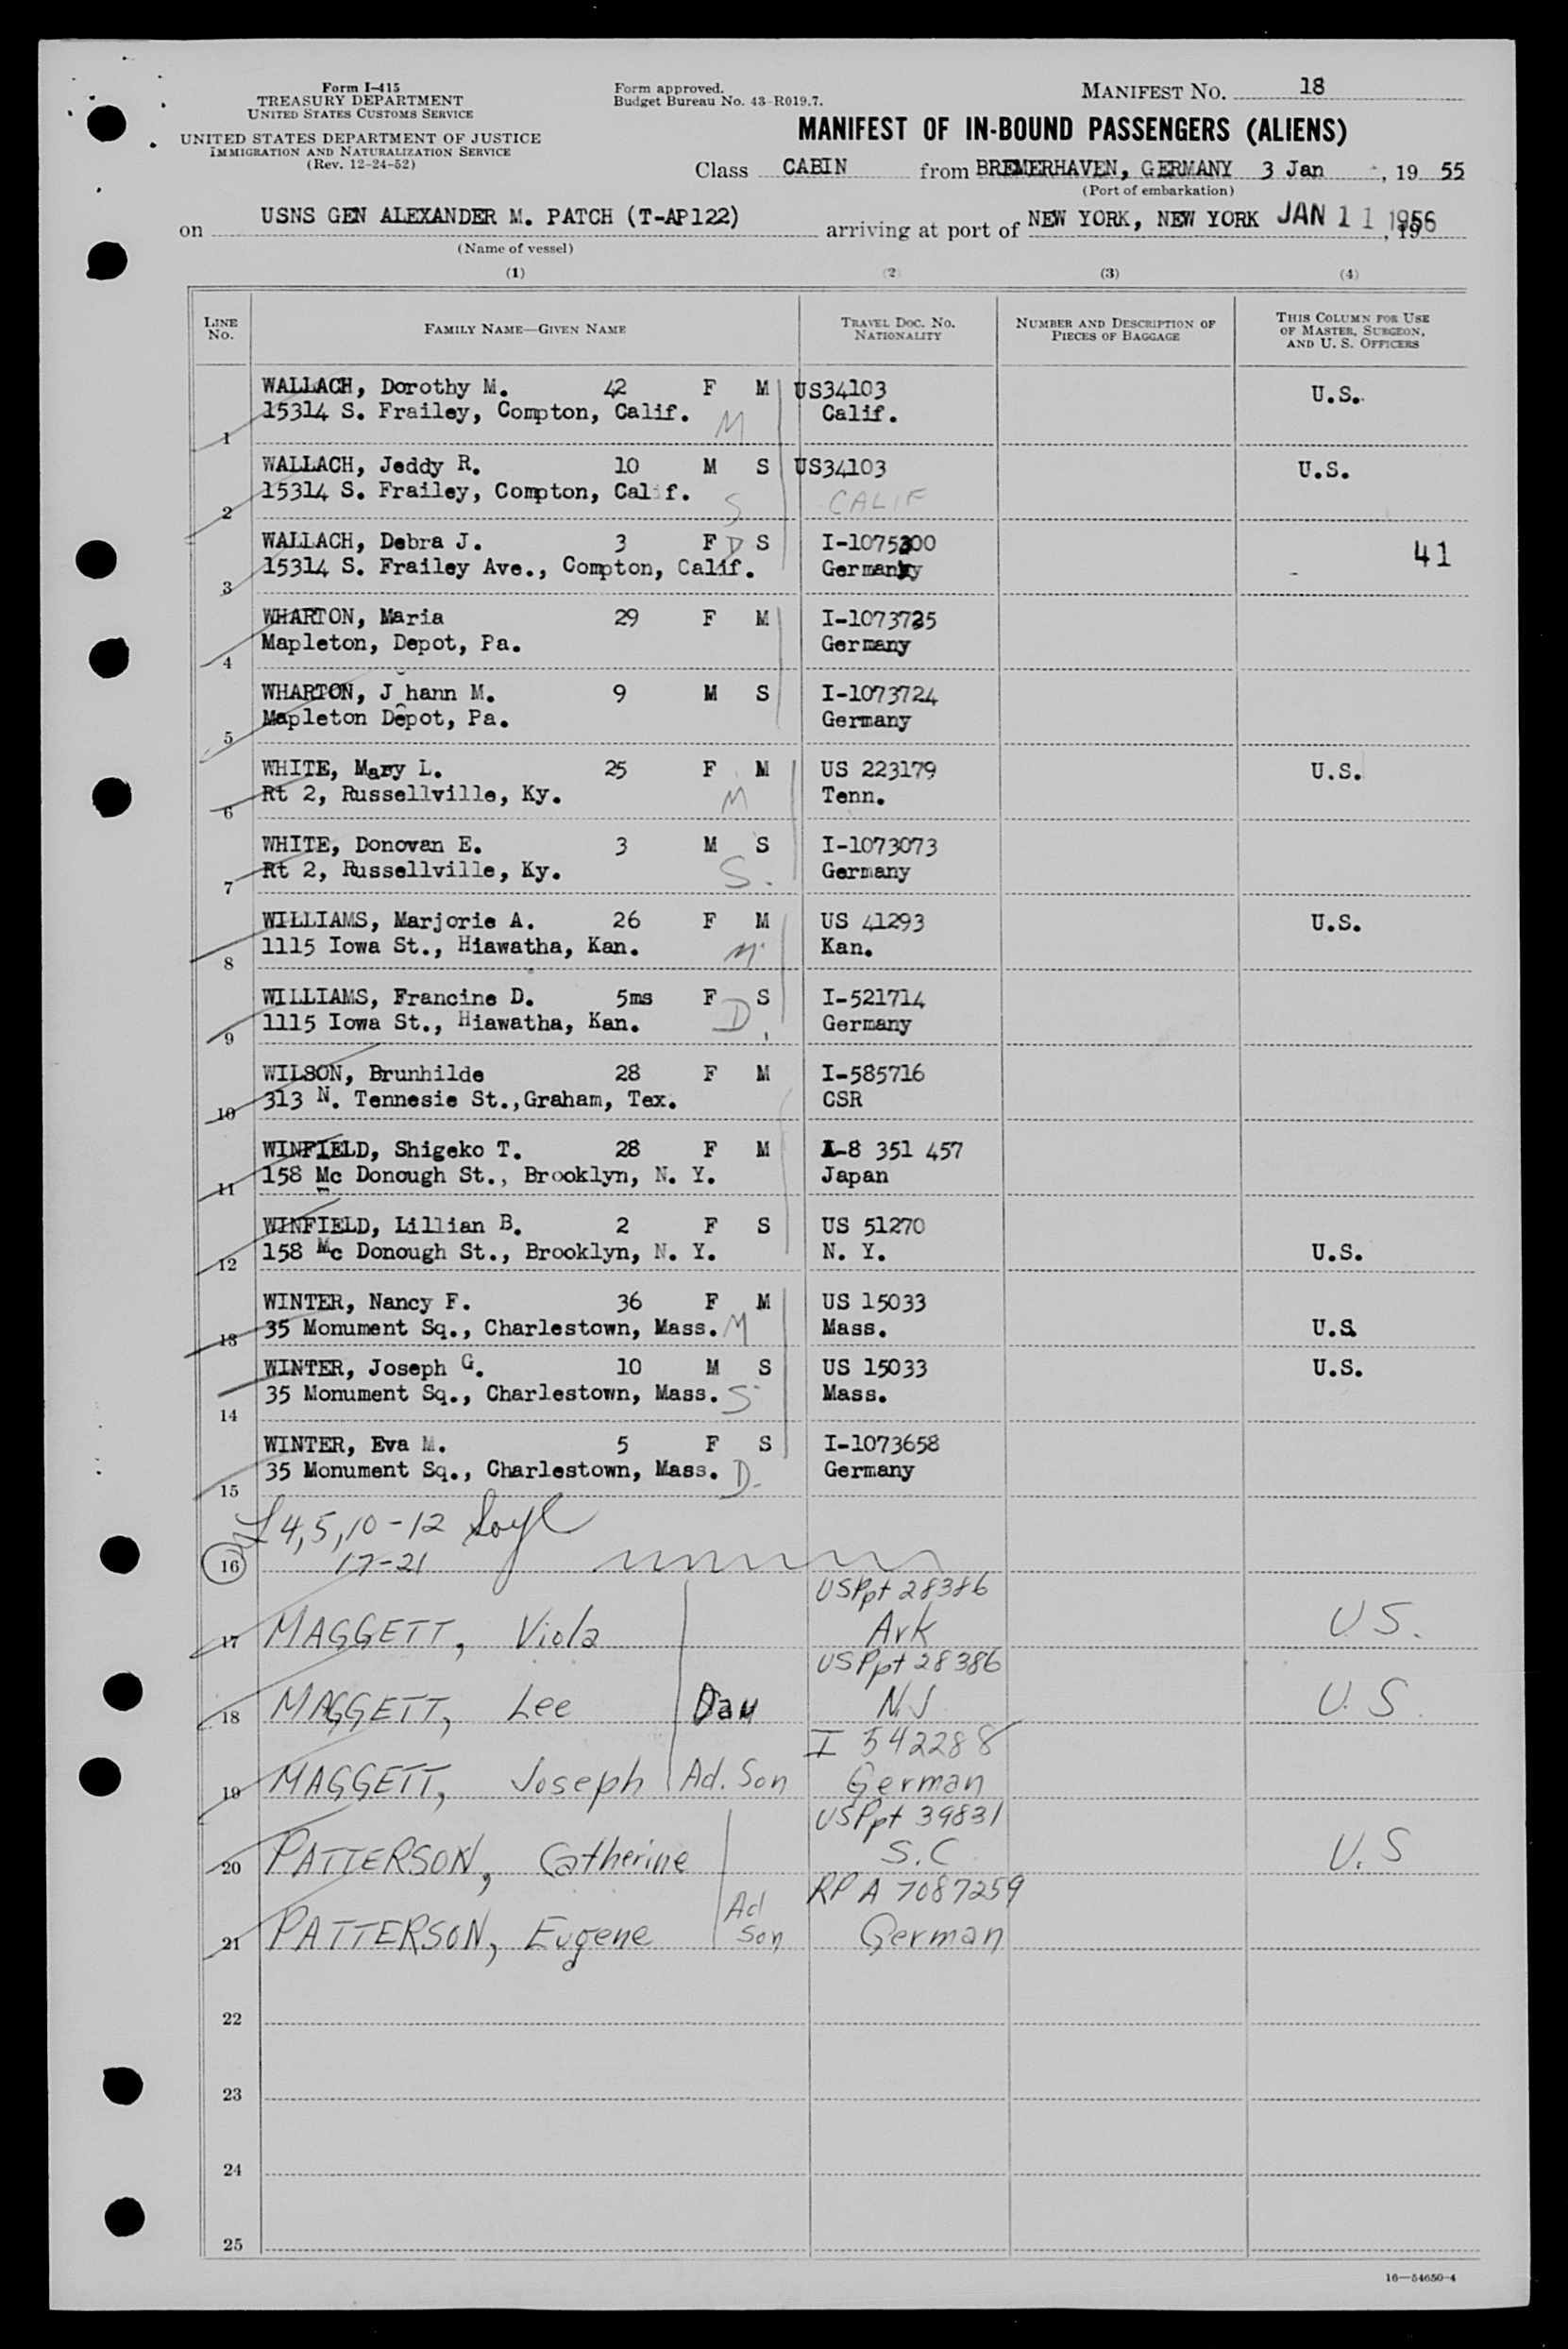 Form I-415
TREASURY DEPARTMENT
UNITED STATES CUSTOMS SERVICE
UNITED STATES DEPARTMENT OF JUSTICE
IMMIGRATION AND NATURALIZATION SERVICE
(Rev. 12-24-52)
Form approved.
Budget Bureau No. 43-R019.7.
MANIFEST NO. 18
MANIFEST OF IN-BOUND PASSENGERS (ALIENS)
Class CABIN from BREMERHAVEN, GERMANY 3 Jan , 19 55
(Port of embarkation)
on USNS GEN ALEXANDER M. PATCH (T-AP122) arriving at port of NEW YORK, NEW YORK JAN 11 1956 , 19
(Name of vessel)
(1) (2) (3) (4)
LINE NO. FAMILY NAME—GIVEN NAME TRAVEL DOC. NO. NATIONALITY NUMBER AND DESCRIPTION OF PIECES OF BAGGAGE THIS COLUMN FOR USE OF MASTER, SURGEON, AND U. S. OFFICERS
WALLACH, Dorothy M. 42 F M US34103 U.S.
1 15314 S. Frailey, Compton, Calif. M Calif.
WALLACH, Jeddy R. 10 M S US34103 U.S.
2 15314 S. Frailey, Compton, Calif. S CALIF
WALLACH, Debra J. 3 F D S I-1075300 41
3 15314 S. Frailey Ave., Compton, Calif. Germany
WHARTON, Maria 29 F M I-1073725
4 Mapleton, Depot, Pa. Germany
WHARTON, J hann M. 9 M S I-1073724
5 Mapleton Depot, Pa. Germany
WHITE, Mary L. 25 F M US 223179 U.S.
6 Rt 2, Russellville, Ky. M Tenn.
WHITE, Donovan E. 3 M S I-1073073
7 Rt 2, Russellville, Ky. S. Germany
WILLIAMS, Marjorie A. 26 F M US 41293 U.S.
8 1115 Iowa St., Hiawatha, Kan. M Kan.
WILLIAMS, Francine D. 5ms F S I-521714
9 1115 Iowa St., Hiawatha, Kan. D. Germany
WILSON, Brunhilde 28 F M I-585716
10 313 N. Tennesie St.,Graham, Tex. CSR
WINFIELD, Shigeko T. 28 F M A-8 351 457
11 158 Mc Donough St., Brooklyn, N. Y. Japan
WINFIELD, Lillian B. 2 F S US 51270
12 158 Mc Donough St., Brooklyn, N. Y. N. Y. U.S.
WINTER, Nancy F. 36 F M US 15033
13 35 Monument Sq., Charlestown, Mass. M Mass. U.S
WINTER, Joseph G. 10 M S US 15033 U.S.
14 35 Monument Sq., Charlestown, Mass. S Mass.
WINTER, Eva M. 5 F S I-1073658
15 35 Monument Sq., Charlestown, Mass. D. Germany
4,5,10-12
16 17-21
USPpt 28386
17 MAGGETT, Viola Ark US.
USPpt 28386
18 MAGGETT, Lee Dau NJ U.S
I 542288
19 MAGGETT, Joseph Ad. Son German
USPpt 39831
20 PATTERSON, Catherine S.C U.S
RP A 7087259
21 PATTERSON, Eugene Ad Son German
22
23
24
25
16—54650-4